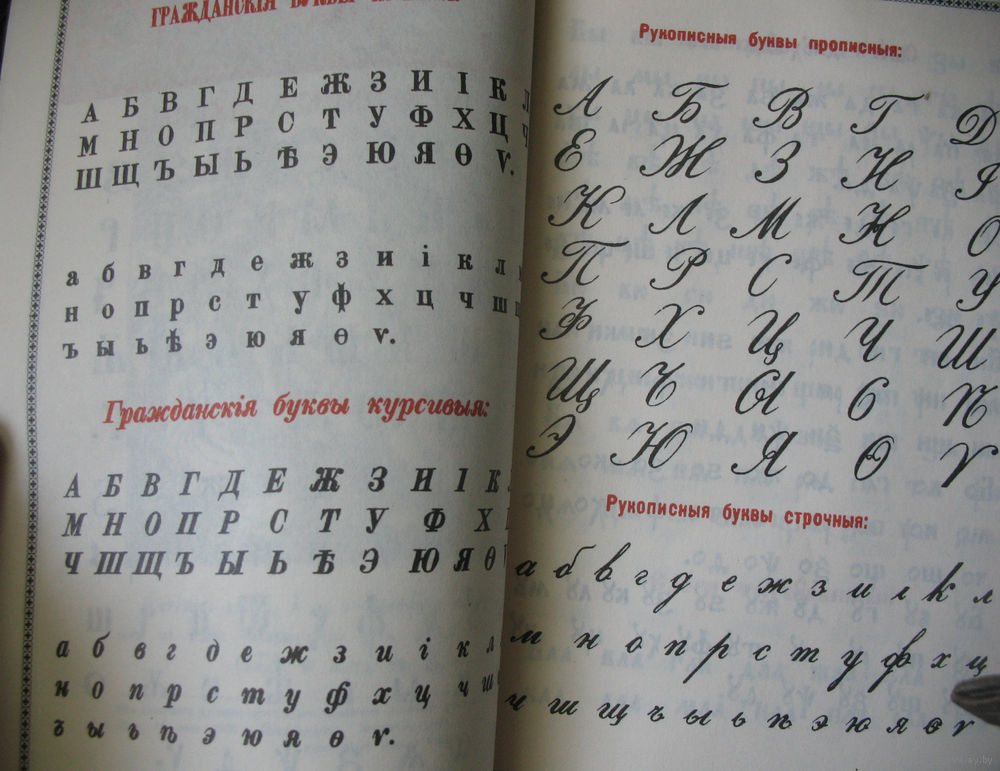 ГРАЖДАНСКІЯ БУКВЫ
А Б В Г Д Е Ж З И І К Л
М Н О П Р С Т У Ф Х Ц Ч
Ш Щ Ъ Ы Ь Ѣ Э Ю Я Ѳ Ѵ.
а б в г д е ж з и і к л
н о п р с т у ф х ц ч ш
ъ ы ь ѣ э ю я ѳ ѵ.
Гражданскія буквы курсивыя:
А Б В Г Д Е Ж З И І К
М Н О П Р С Т У Ф Х
Ч Ш Щ Ъ Ы Ь Ѣ Э Ю Я Ѳ
а б в г д е ж з и і к л
н о п р с т у ф х ц ч ш
ъ ы ь ѣ э ю я ѳ ѵ.
Рукописныя буквы прописныя:
А Б В Г Д
Е Ж З И І
К Л М Н О
П Р С Т У
Ф Х Ц Ч Ш
Щ Ъ Ы Ь Ѣ
Э Ю Я Ѳ Ѵ
Рукописныя буквы строчныя:
а б в г д е ж з и і к л
м н о п р с т у ф х ц
ч ш щ ъ ы ь ѣ э ю я ѳ ѵ